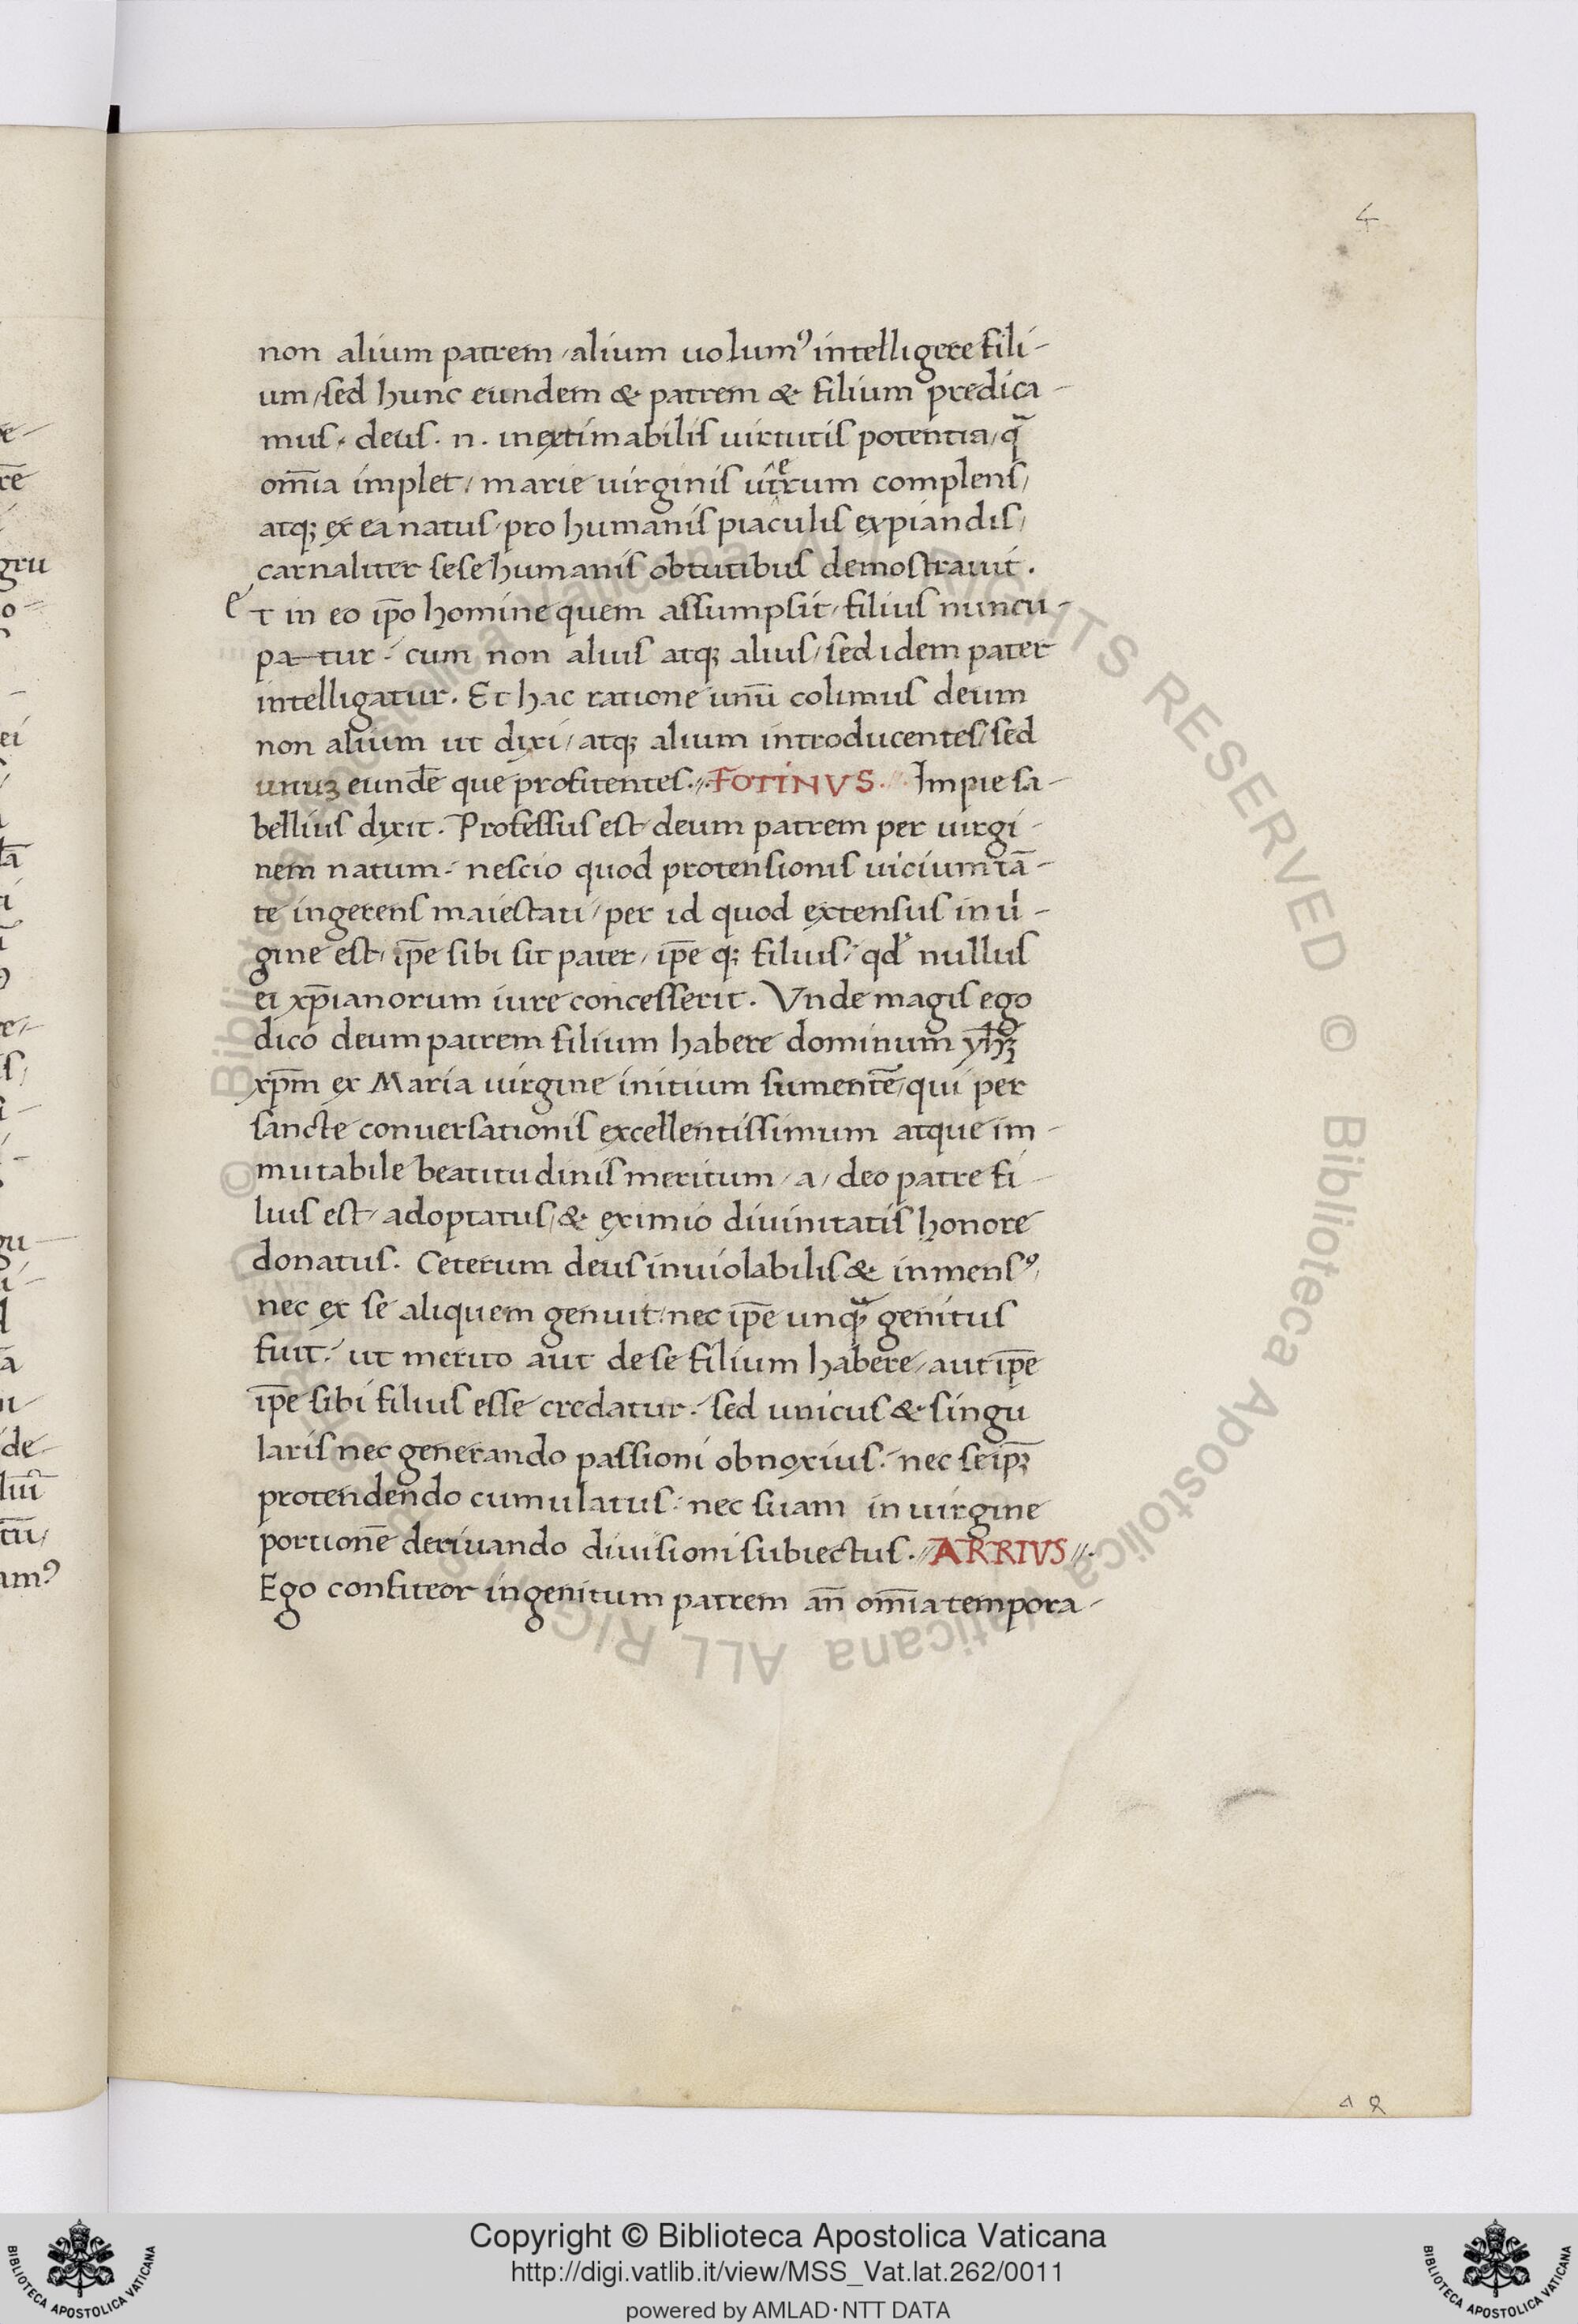 4
non alium patrem / alium uolumꝰ intelligere fili-
um / sed hunc eundem & patrem & filium predica-
mus. deus. n. inextimabilis uirtutis potentia / q̄
om̄ia implet / marie uirginis uterum complens /
atq; ex ea natus / pro humanis piaculis expiandis /
carnaliter sese humanis obtutibus demostrauit.
et in eo ip̄o homine quem assumpsit / filius nuncu-
patur / cum non alius atq; alius / sed idem pater
intelligatur. Et hac ratione unū colimus deum
non alium ut dixi / atq; alium introducentes / sed
unuꝫ eundē que profitentes. // FOTINVS. // Impie sa-
bellius dixit. Professus est deum patrem per uirgi-
nem natum / nescio quod protensionis uicium tā-
te ingerens maiestati / per id quod extensus in ui-
gine est / ip̄e sibi sit pater / ip̄e q; filius / qd nullus
ei xp̄ianorum iure concesserit. Vnde magis ego
dico deum patrem filium habere dominum yh̄ꝫ
xp̄m ex Maria uirgine initium sumentē / qui per
sancte conuersationis excellentissimum atque im-
mutabile beatitudinis meritum / a / deo patre fi-
lius est / adoptatus / & eximio diuinitatis honore
donatus. Ceterum deus inuiolabilis & inmensꝰ /
nec ex se aliquem genuit / nec ip̄e unq̄ genitus
fuit / ut merito aut de se filium habere / aut ip̄e
ip̄e sibi filius esse credatur / sed unicus & singu
laris nec generando passioni obnoxius / nec seip̄ꝫ
protendendo cumulatus / nec suam in uirgine
portionē deriuando diuisioni subiectus. // ARRIVS //.
Ego confiteor ingenitum patrem an̄ om̄ia tempora-
Copyright © Biblioteca Apostolica Vaticana
http://digi.vatlib.it/view/MSS_Vat.lat.262/0011
powered by AMLAD·NTT DATA
BIBLIOTECA APOSTOLICA VATICANA
BIBLIOTECA APOSTOLICA VATICANA
© Biblioteca Apostolica Vaticana ALL RIGHTS RESERVED © Biblioteca Apostolica Vaticana ALL RIGHTS RESERVED